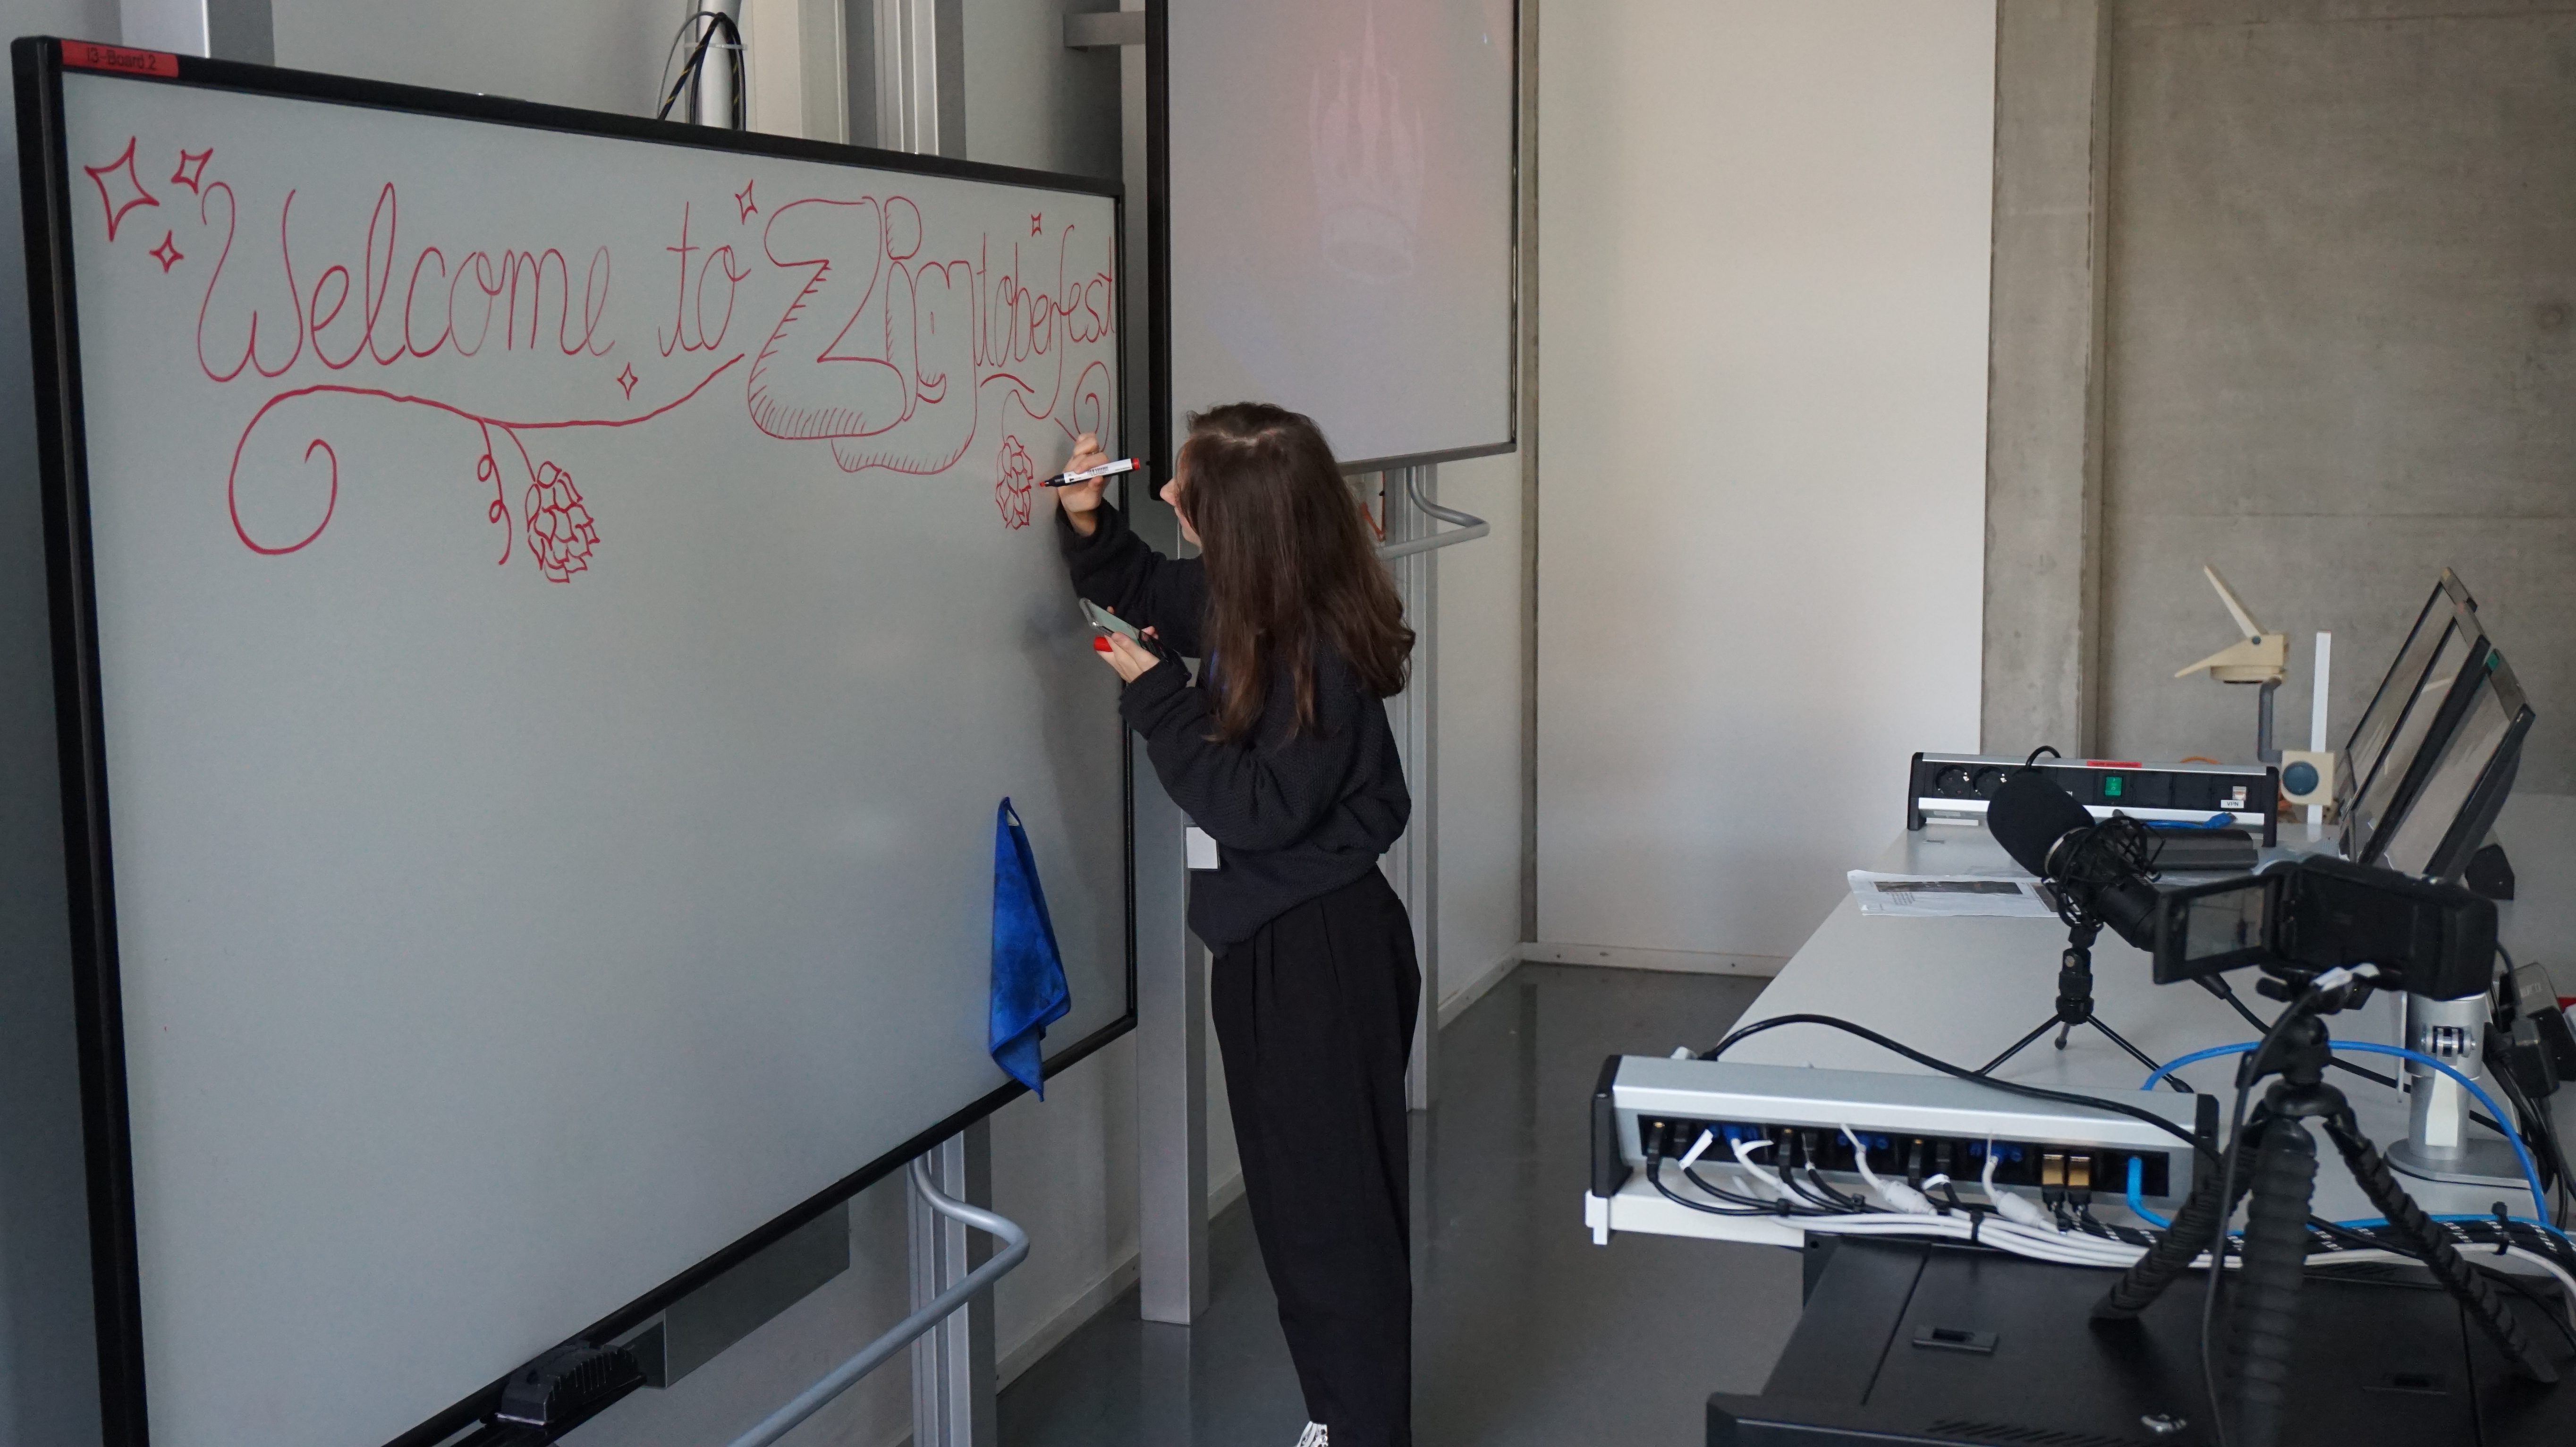 i3-Board 2
Welcome to Zigtoberfest
VPN